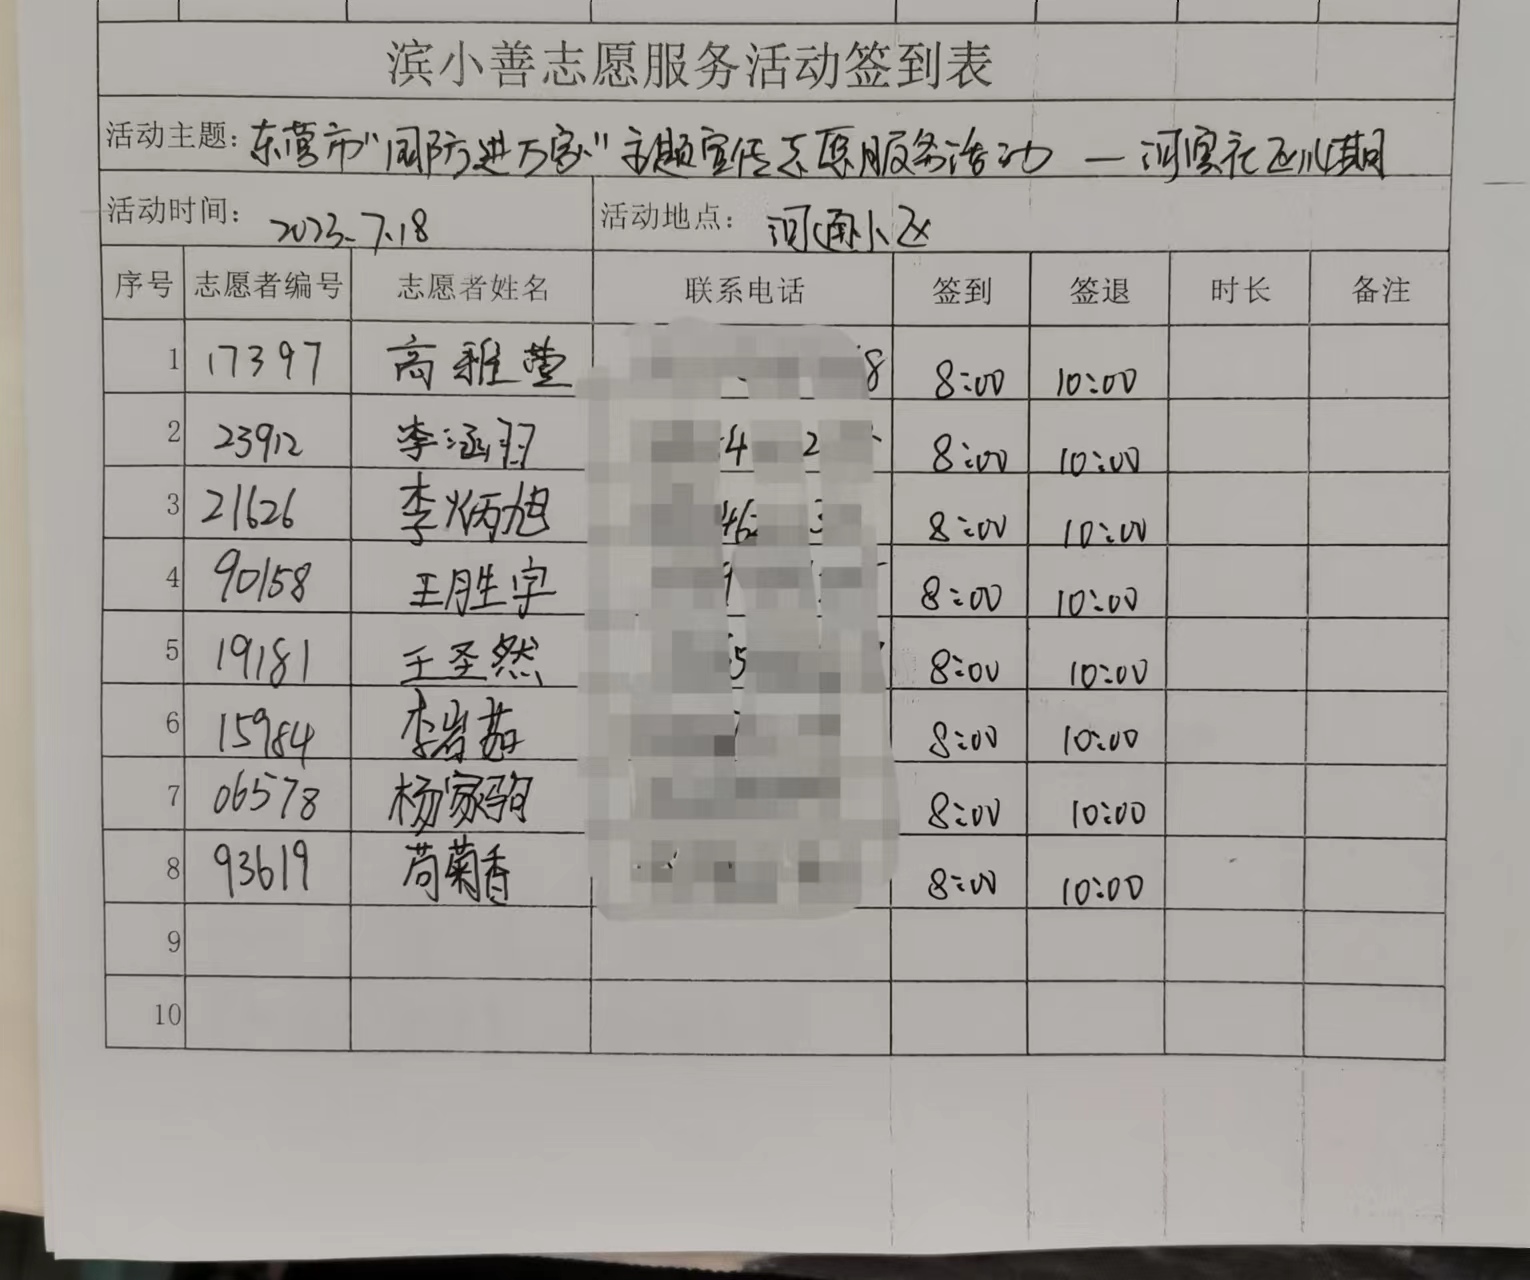 滨小善志愿服务活动签到表
活动主题：东营市“国防进万家”主题宣传志愿服务活动 — 河滨社区
活动时间：2023.7.18 活动地点：河通小区
序号 志愿者编号 志愿者姓名 联系电话 签到 签退 时长 备注
1 17397 高雅萱 8 8:00 10:00
2 23912 李涵羽 4 2 8:00 10:00
3 21626 李炳旭 46 3 8:00 10:00
4 90158 王胜宇 8:00 10:00
5 19181 王圣然 5 8:00 10:00
6 15984 李岩茹 8:00 10:00
7 06578 杨家驹 8:00 10:00
8 93619 苟菊香 8:00 10:00
9
10